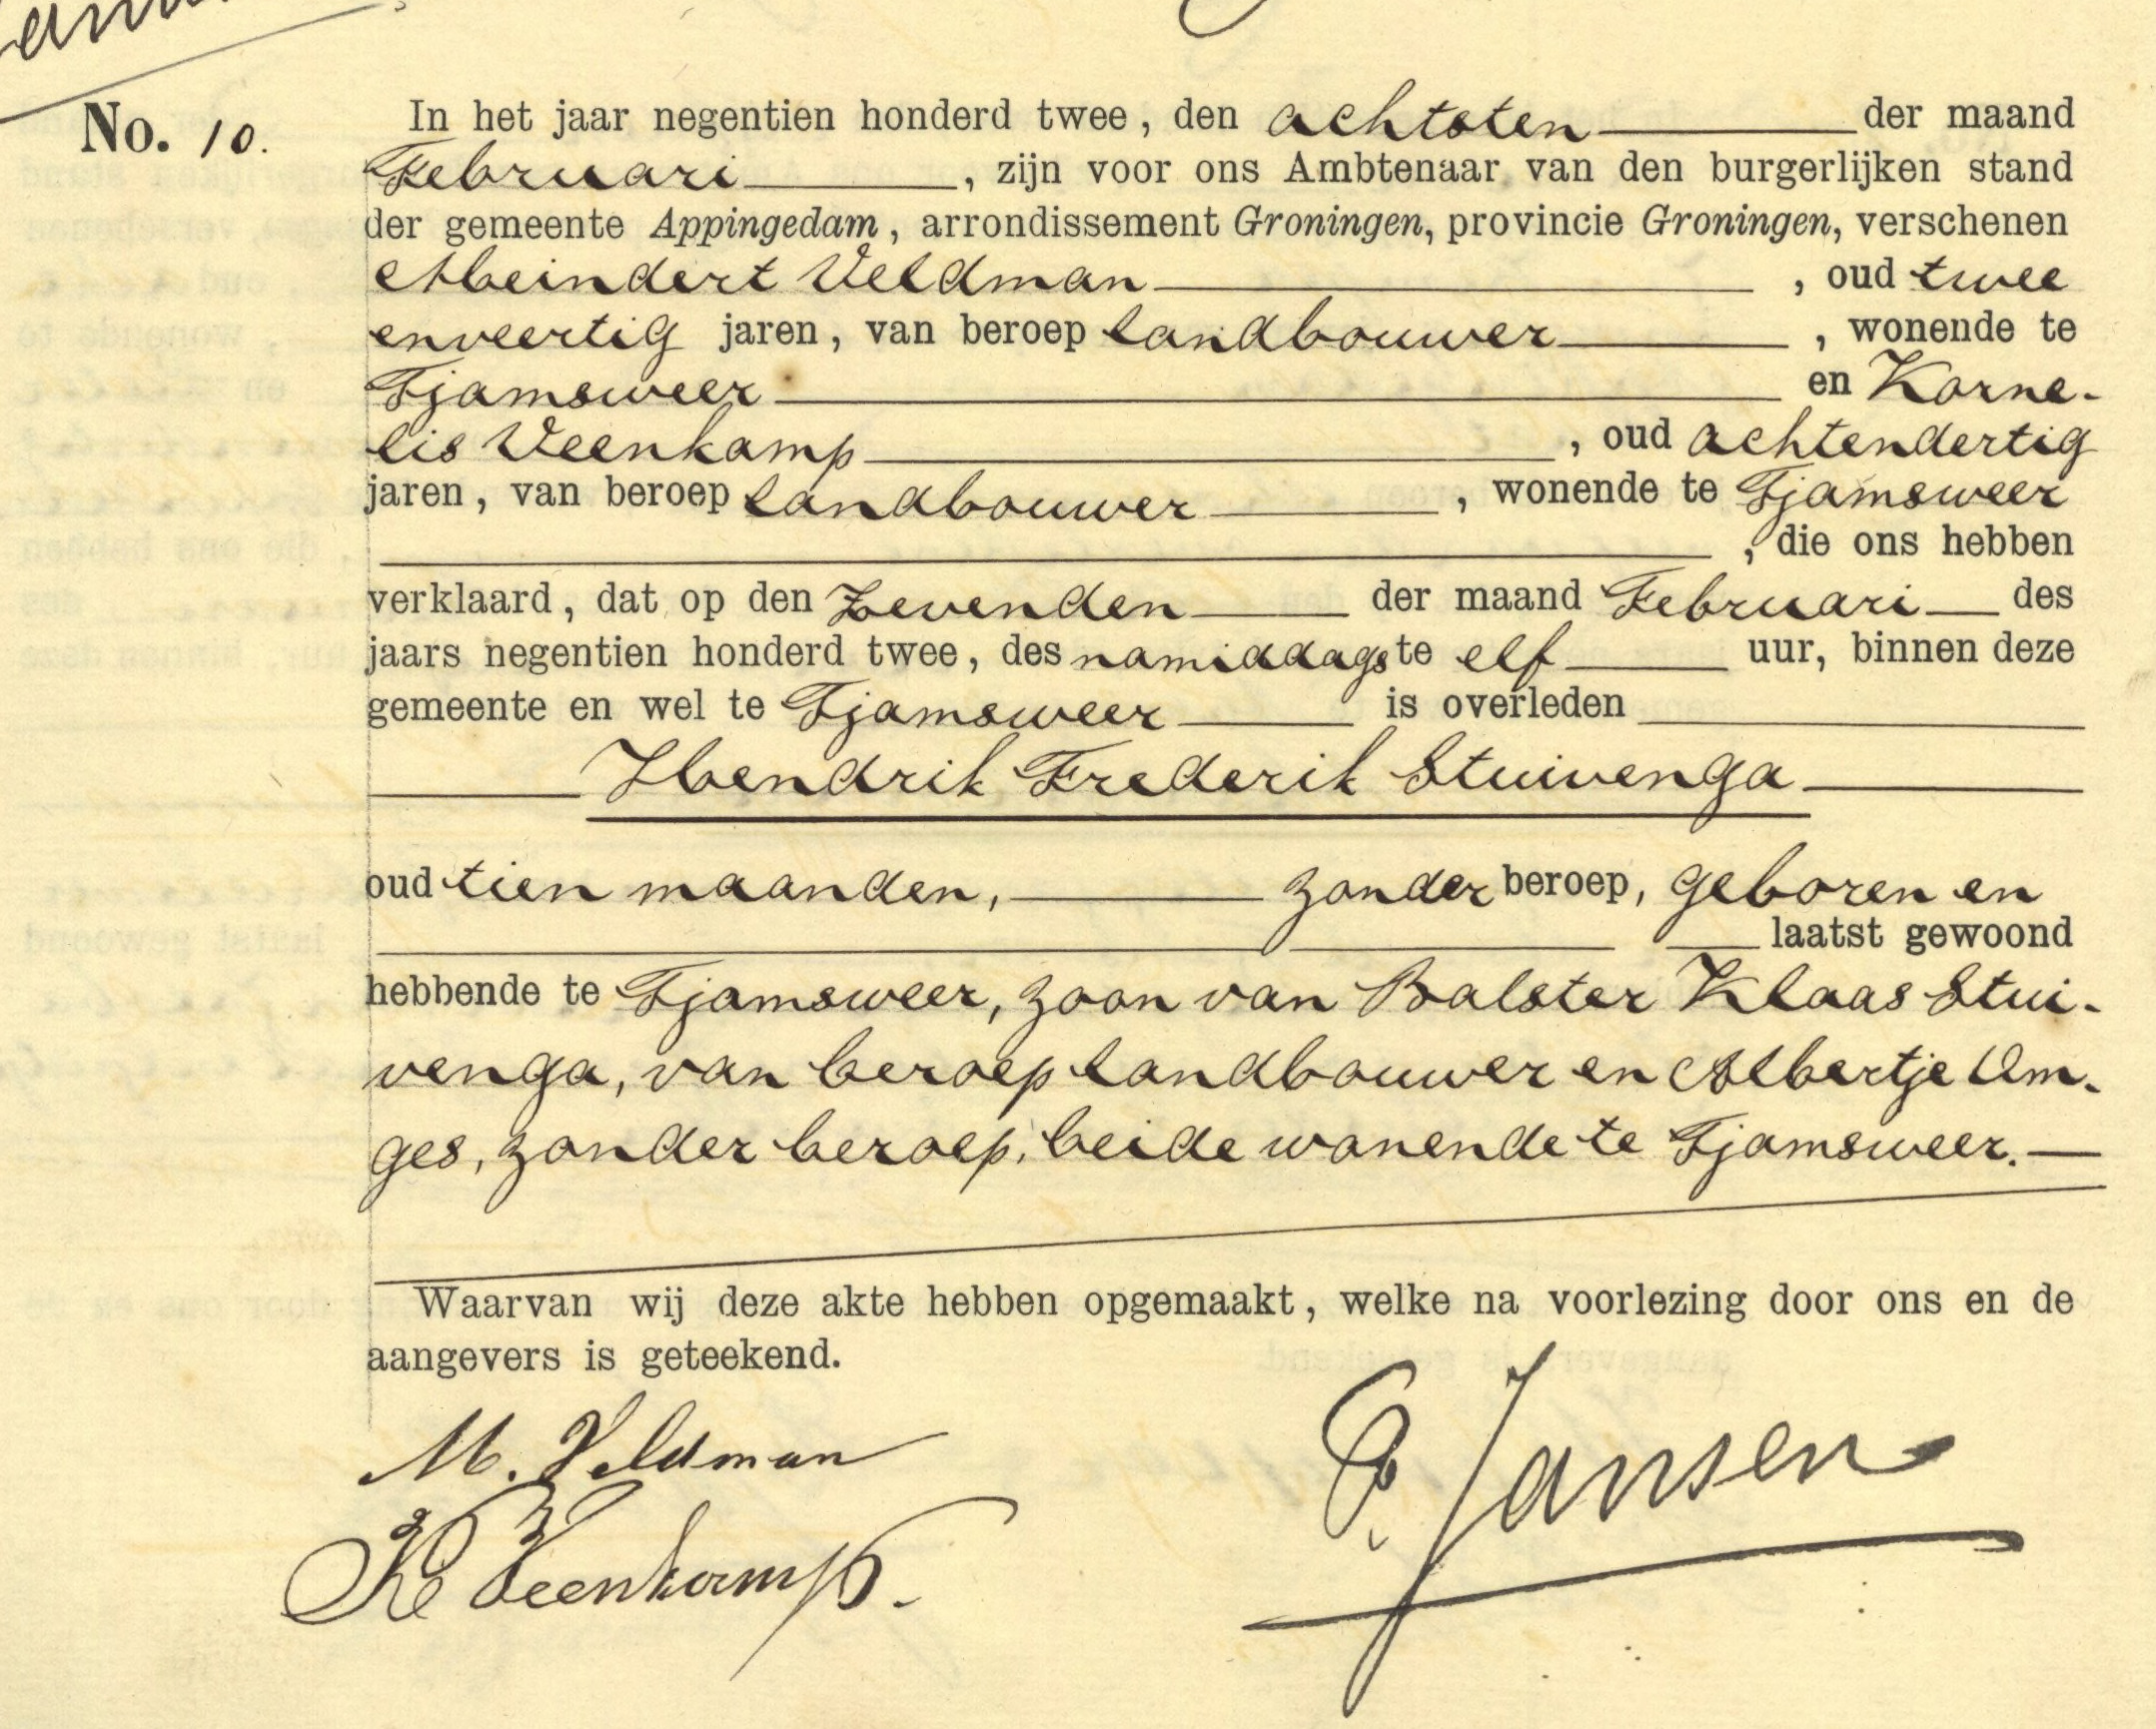 No. 10.
In het jaar negentien honderd twee, den achtsten der maand
Februari, zijn voor ons Ambtenaar van den burgerlijken stand
der gemeente Appingedam, arrondissement Groningen, provincie Groningen, verschenen
Meindert Veldman, oud twee
enveertig jaren, van beroep landbouwer, wonende te
Tjamsweer en Korne-
lis Veenkamp, oud achtendertig
jaren, van beroep landbouwer, wonende te Tjamsweer
, die ons hebben
verklaard, dat op den zevenden der maand Februari des
jaars negentien honderd twee, des namiddags te elf uur, binnen deze
gemeente en wel te Tjamsweer is overleden
Hendrik Frederik Stuivenga
oud tien maanden, zonder beroep, geboren en
laatst gewoond
hebbende te Tjamsweer, zoon van Balster Klaas Stui-
venga, van beroep landbouwer en Albertje Om-
ges, zonder beroep, beide wonende te Tjamsweer.
Waarvan wij deze akte hebben opgemaakt, welke na voorlezing door ons en de
aangevers is geteekend.
M. Veldman
K Veenkamp.
Jansen